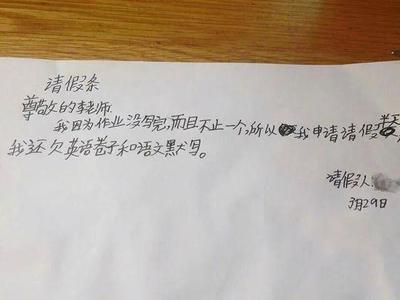 请假条
尊敬的李老师
我因为作业没写完,而且不止一个,所以我申请请假半天,
我还欠英语卷子和语文默写。
请假人:
3月29日